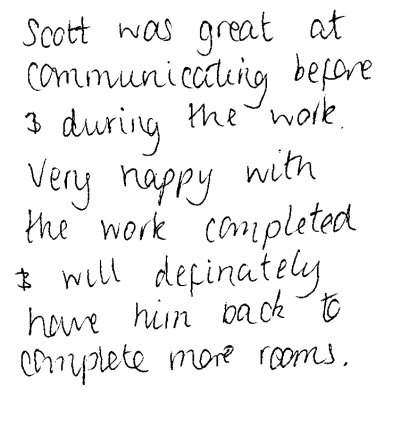 Scott was great at
communicating before
& during the work.
Very happy with
the work completed
& will definately
have him back to
complete more rooms.